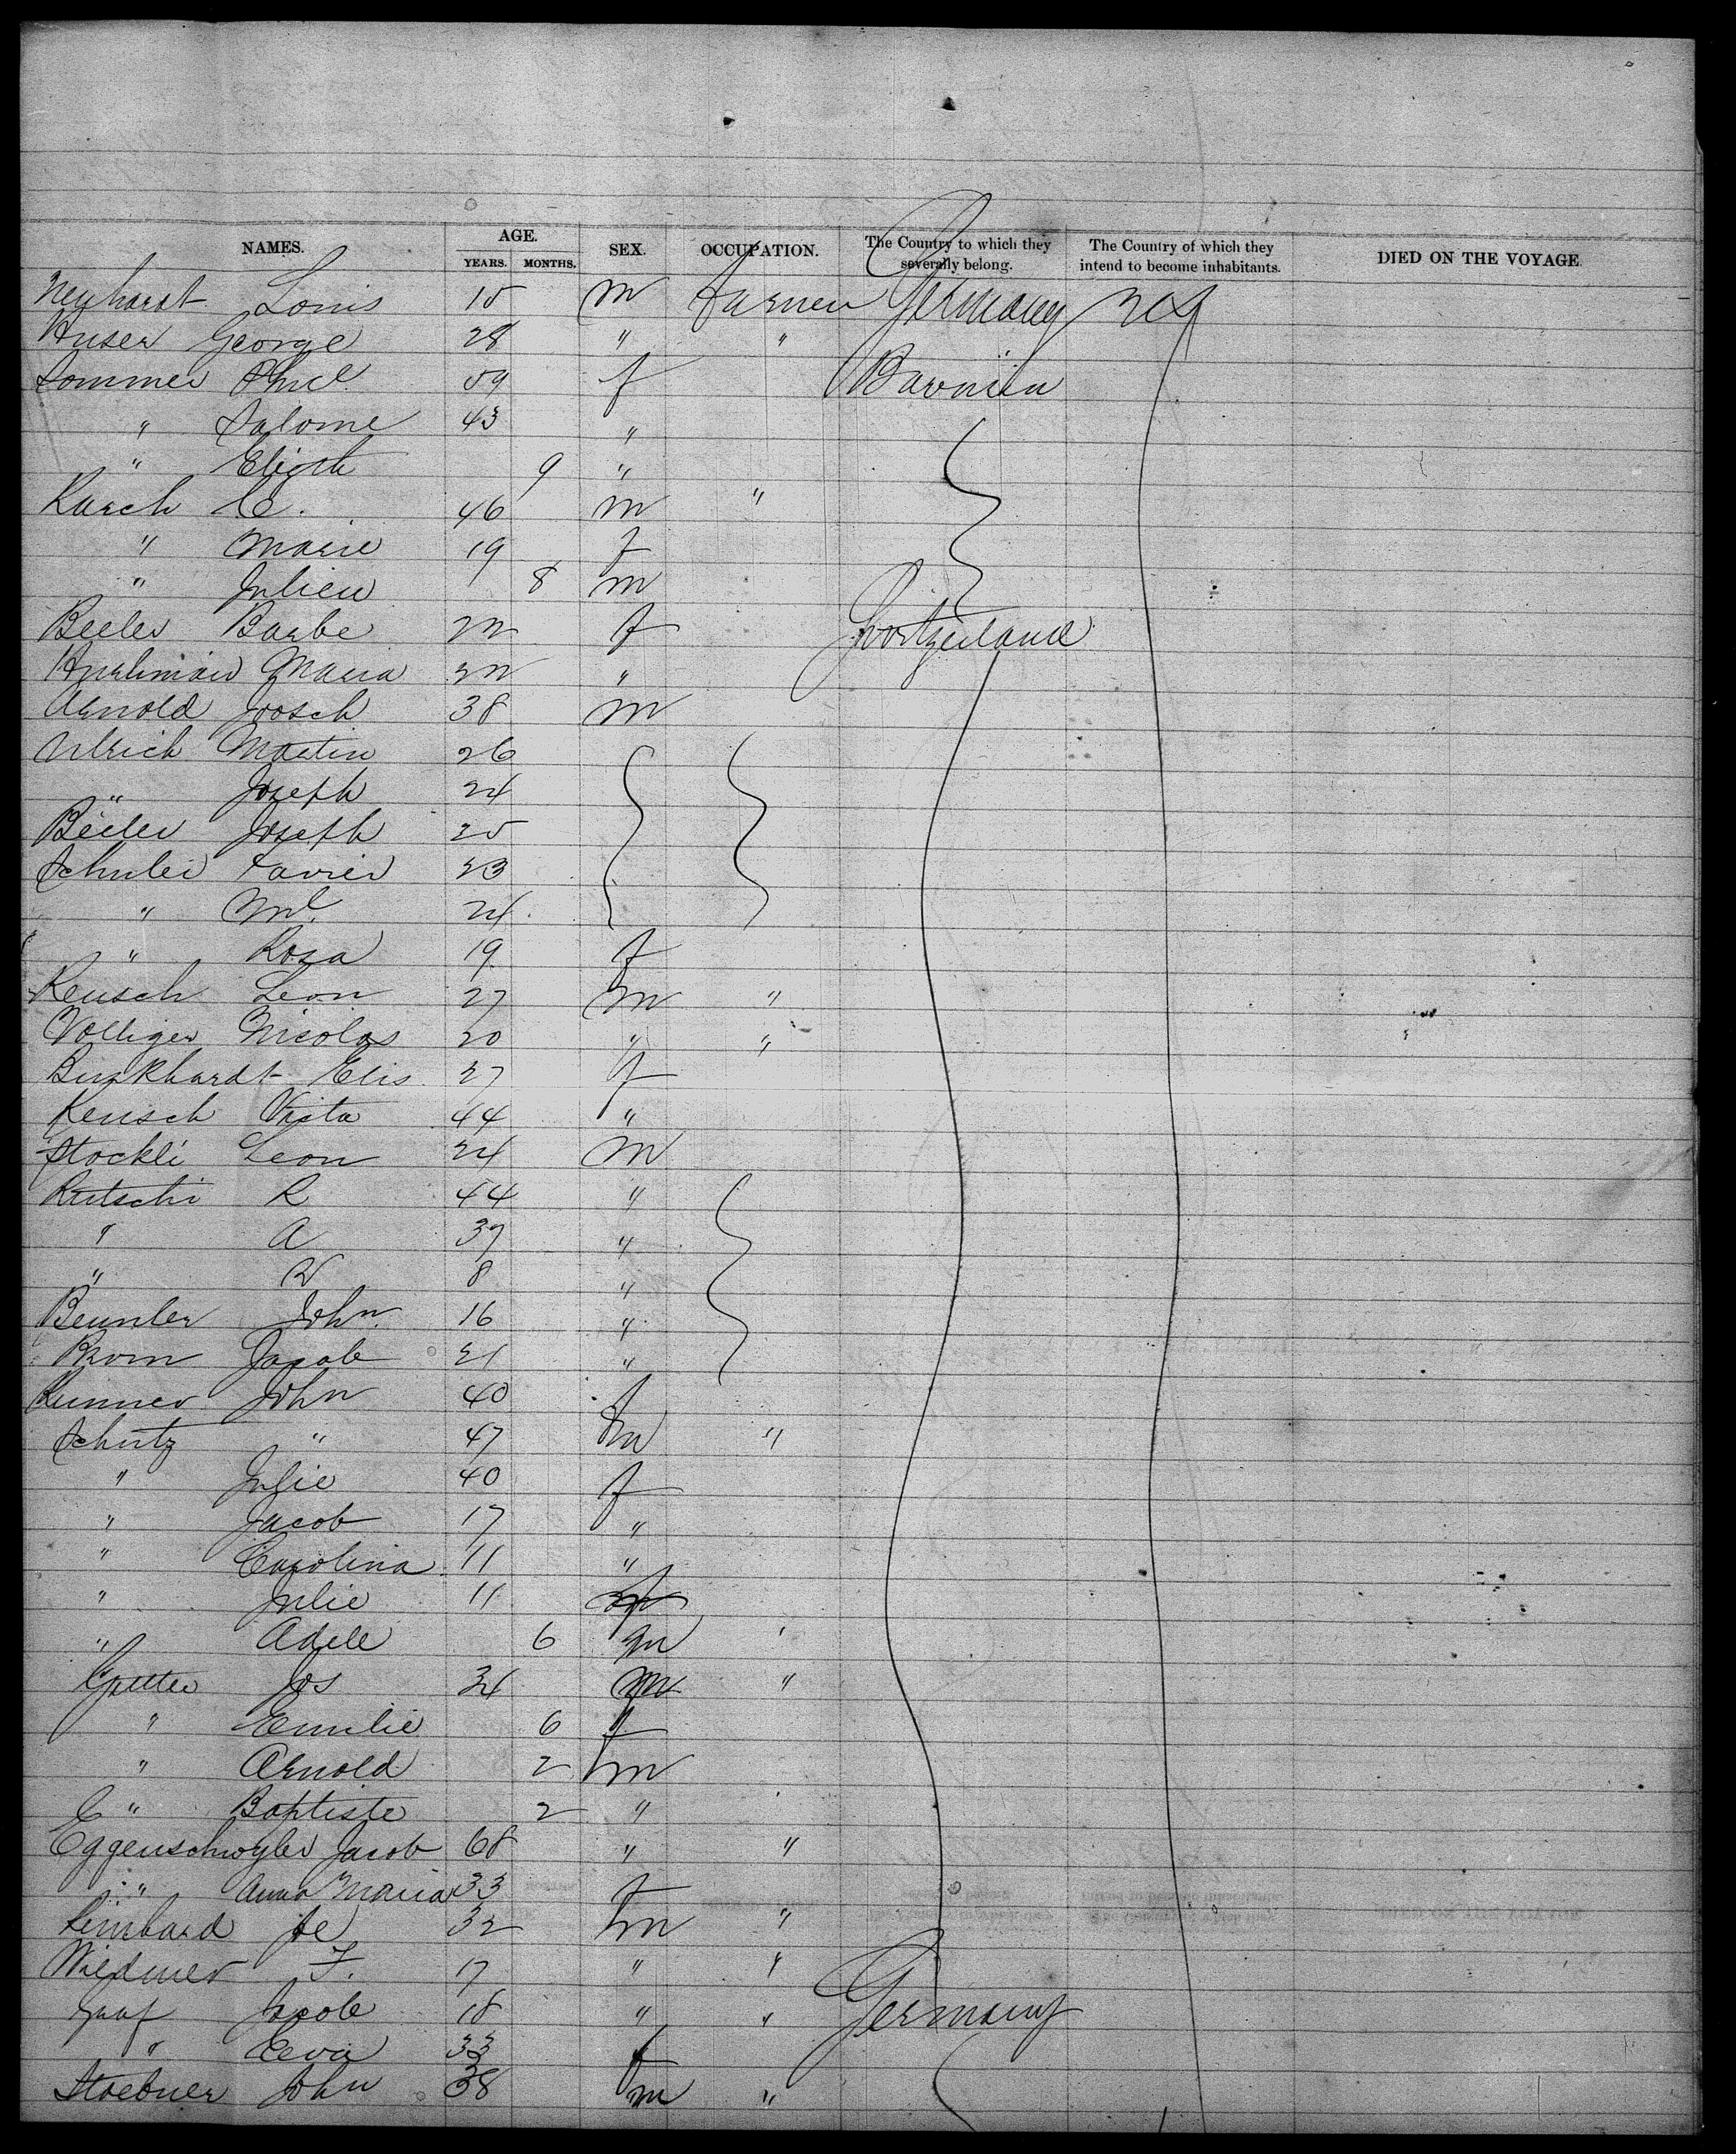 NAMES. AGE. SEX. OCCUPATION. The Country to which they severally belong. The Country of which they intend to become inhabitants. DIED ON THE VOYAGE.
YEARS. MONTHS.
Neuhardt Louis 15 m Farmer Germany
Huser George 28 " "
Sommer 59 f Bavaria
" Salome 43 "
" 9 "
Karch C. 46 m "
" Marie 19 f
" Julien 8 m
Beeler Barbe 22 f Switzerland
Maria 22 "
Arnold 38 m
Ulrich Martin 26
" Joseph 24
Beeler Joseph 25
Schuler Xavier 23
" 24
" Rosa 19 f
Reusch Leon 27 m "
Volliger Nicolas 20 " "
Burkhardt Elis 27 f
Reusch 44 "
Stockli Leon 24 m
Rutschi R 44 "
" A 37 "
" W 8 "
John 16 "
Jacob 21 "
John 40 f
Schutz " 47 m "
" Julie 40 f
" Jacob 17 "
" Carolina 11 "
" Julie 11
" Adele 6 m
Jos 34 m "
" Emilie 6 f
" Arnold 2 m
" Baptiste 2 "
Eggenschwyler Jacob 68 " "
" Anna Maria 33 f
32 m "
Wiedmer F. 17 " "
Graf Jacob 18 " " Germany
" Eva 33 f
Stoebner John 38 m "